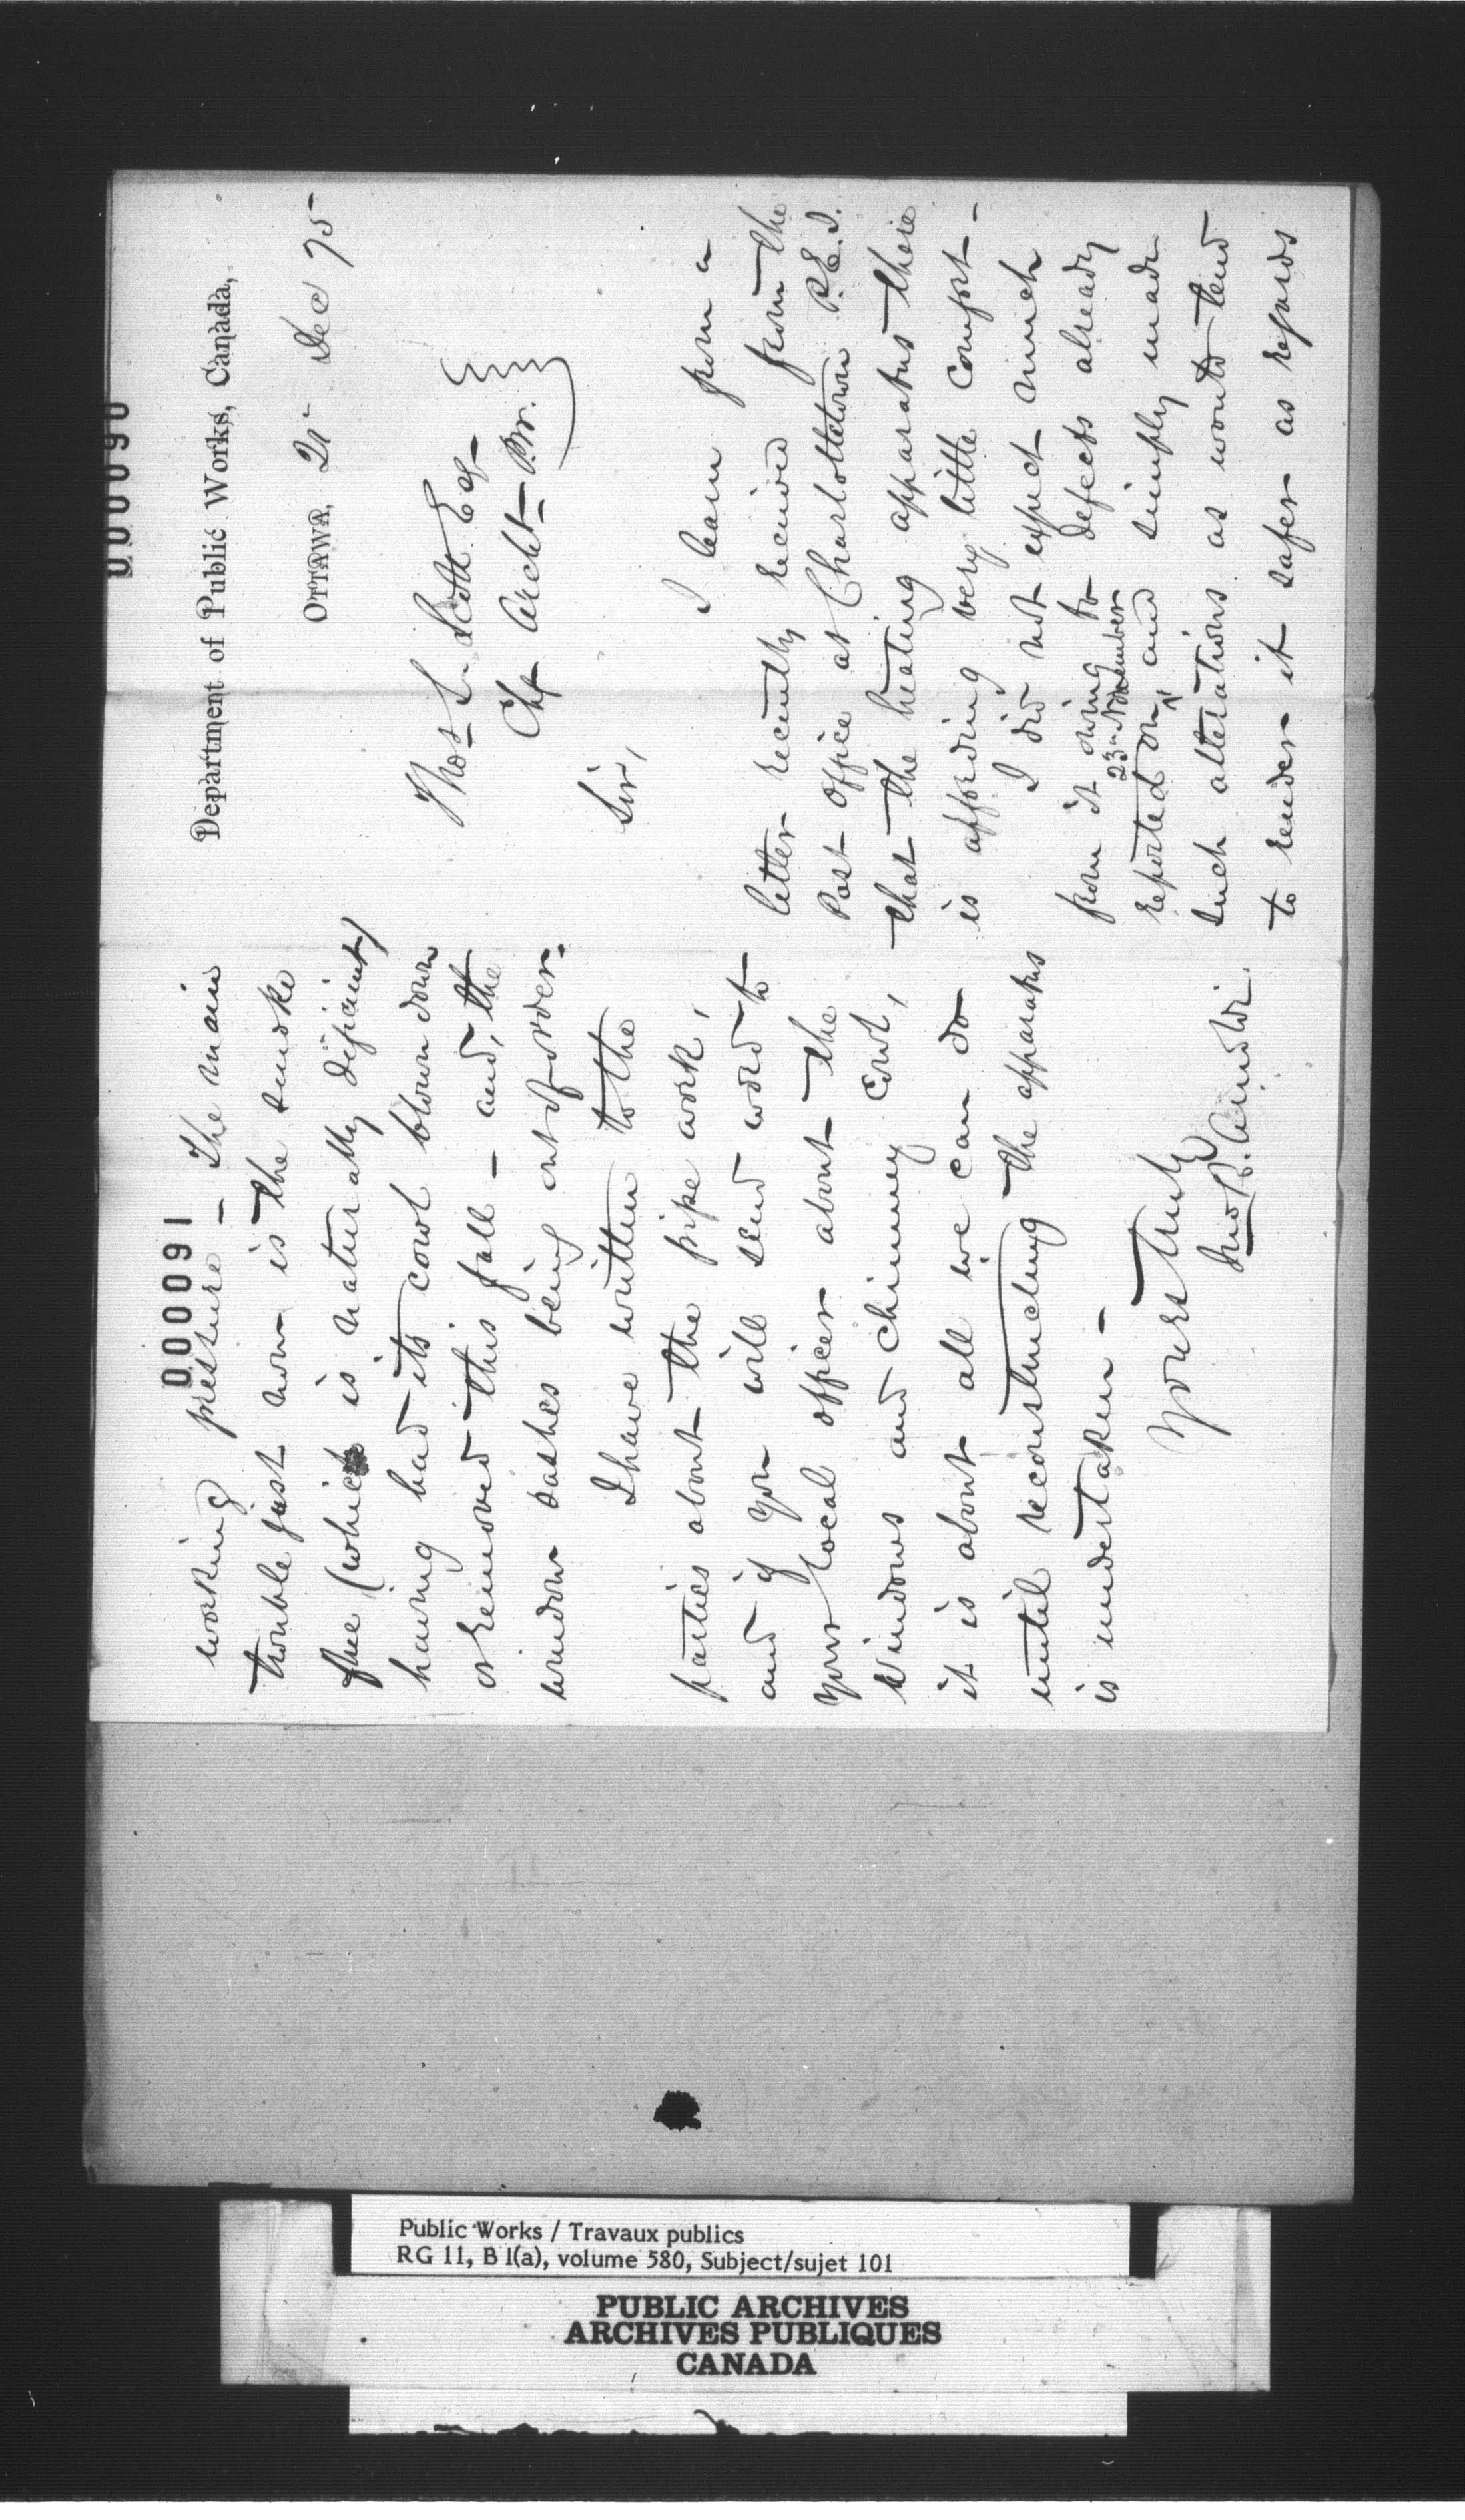 000090
Department of Public Works, Canada,
Ottawa, 21 Dec 75
Thos S. Scott Esq
Chf Archt P.W.
Sir,
I learn from a
letter recently received from the
Post Office at Charlottetown P.E.I.
that the heating apparatus there
is affording very little comfort -
I did not expect much
from it owing to defects already
23rd November
reported on ^ and simply made
such alterations as would tend
to render it safer as regards
000091
working pressure - The main
trouble just now is the smoke
flue (which is naturally deficient)
having had its cowl blown down
or removed this fall - and, the
window sashes being out of order.
I have written to the
parties about the pipe work,
and if you will send word to
your local officer about the
windows and chimney cowl,
it is about all we can do
until reconstructing the apparatus
is undertaken -
Yours truly
Jno R.
Public Works / Travaux publics
RG 11, B 1(a), volume 580, Subject/sujet 101
PUBLIC ARCHIVES
ARCHIVES PUBLIQUES
CANADA